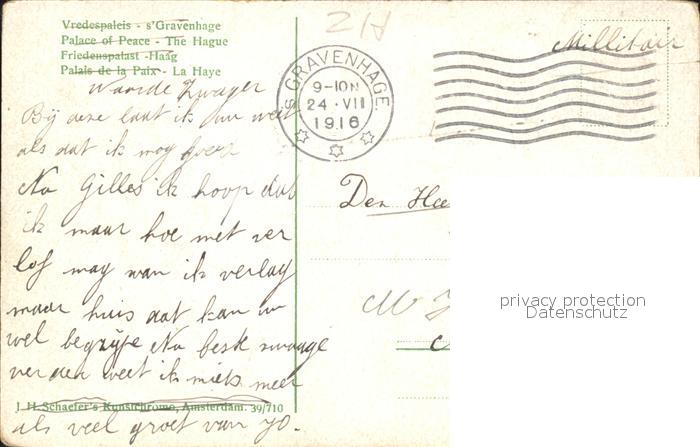 Vredespaleis - s'Gravenhage
Palace of Peace - The Hague
Friedenspalast - Haag
Palais de la Paix - La Haye
Waarde Zwager
Bij deze laat ik uw weet
als dat ik nog goed
Na Gilles ik hoop dat
ik maar hoe met ver
lof mag wan ik verlag
maar huis dat kan uw
wel begrijpe Na beste zwage
verder weet ik niets meer
J. H. Schaefer's Kunstchrome, Amsterdam. 39/710
als veel groet van JO.
2H
's GRAVENHAGE.
9-10N
24 · VII
1916
Millitair
Den Hee
M
privacy protection
Datenschutz